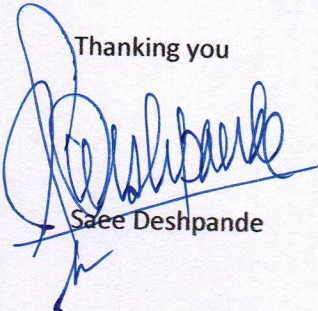 Thanking you
Deshpande
Saee Deshpande